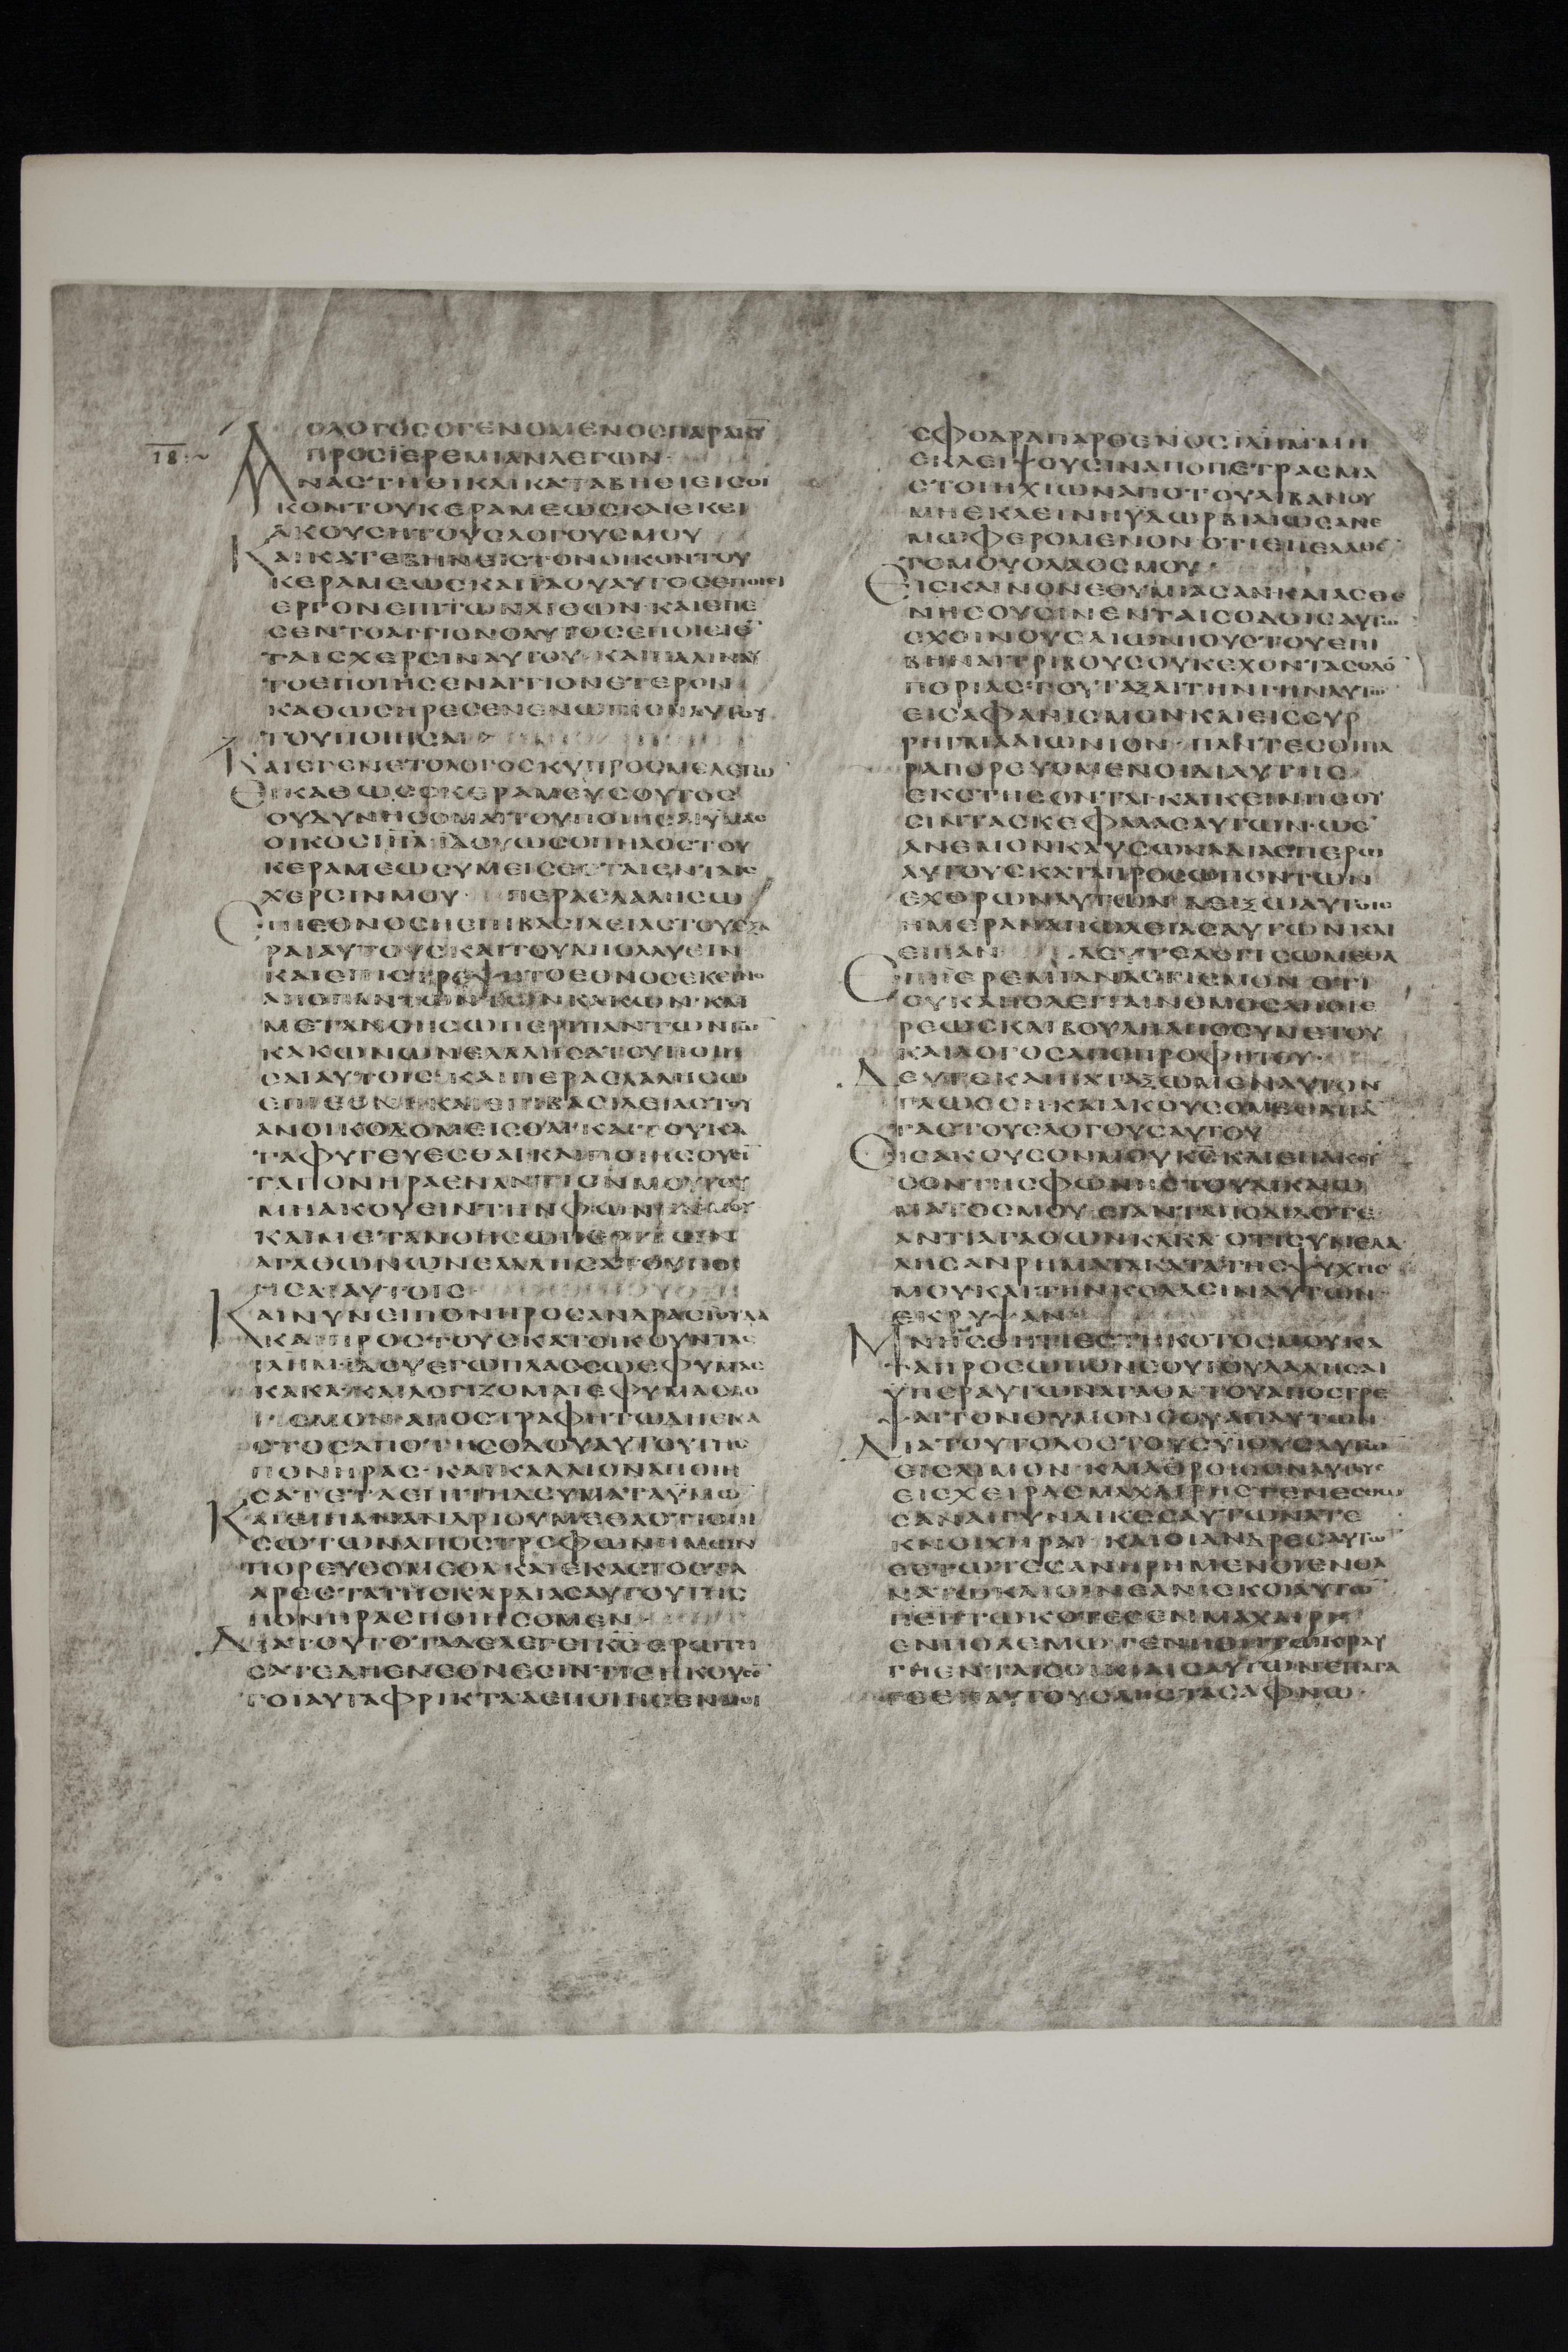 18
ΟΛΟΓΟϹΟΓΕΝΟΜΕΝΟϹΠΑΡΑΚΥ
ΠΡΟϹΙΕΡΕΜΙΑΝΛΕΓΩΝ
ΑΝΑϹΤΗΘΙΚΑΙΚΑΤΑΒΗΘΙΕΙϹΟΙ
ΚΟΝΤΟΥΚΕΡΑΜΕΩϹΚΑΙΕΚΕΙ
ΑΚΟΥϹΗΤΟΥϹΛΟΓΟΥϹΜΟΥ
ΚΑΙΚΑΤΕΒΗΝΕΙϹΤΟΝΟΙΚΟΝΤΟΥ
ΚΕΡΑΜΕΩϹΚΑΙΙΔΟΥΑΥΤΟϹΕΠΟΙΕΙ
ΕΡΓΟΝΕΠΙΤΩΝΛΙΘΩΝ·ΚΑΙΕΠΕ
ϹΕΝΤΟΑΓΓΙΟΝΟΑΥΤΟϹΕΠΟΙΕΙΕ̅
ΤΑΙϹΧΕΡϹΙΝΑΥΤΟΥ·ΚΑΙΠΑΛΙΝΑΥ
ΤΟΕΠΟΙΗϹΕΝΑΓΓΙΟΝΕΤΕΡΟΝ
ΚΑΘΩϹΗΡΕϹΕΝΕΝΩΠΙΟΝΑΥΤΟΥ
ΤΟΥΠΟΙΗϹΑΙ
ΚΑΙΕΓΕΝΕΤΟΛΟΓΟϹΚΥΠΡΟϹΜΕΛΕΓΩ̅
ΕΙΚΑΘΩϹΟΚΕΡΑΜΕΥϹΟΥΤΟϹ
ΟΥΔΥΝΗϹΟΜΑΙΤΟΥΠΟΙΗϹΑΙΥΜΑϹ
ΟΙΚΟϹΙΗΛ·ΙΔΟΥΩϹΟΠΗΛΟϹΤΟΥ
ΚΕΡΑΜΕΩϹΥΜΕΙϹΕϹΤΑΙΕΝΤΑΙϹ
ΧΕΡϹΙΝΜΟΥ· ΠΕΡΑϹΛΑΛΗϹΩ
ΕΠΙΕΘΝΟϹΗΕΠΙΒΑϹΙΛΕΙΑϹΤΟΥΕΞΑ
ΡΑΙΑΥΤΟΥϹΚΑΙΤΟΥΑΠΟΛΛΥΕΙΝ
ΚΑΙΕΠΙϹΤΡΕΨΗΤΟΕΘΝΟϹΕΚΕΙΝΟ
ΑΠΟΠΑΝΤΩΝΤΩΝΚΑΚΩΝ·ΚΑΙ
ΜΕΤΑΝΟΗϹΩΠΕΡΙΠΑΝΤΩΝΤΩ̅
ΚΑΚΩΝΩΝΕΛΑΛΗϹΑΤΟΥΠΟΙΗ
ϹΑΙΑΥΤΟΙϹ·ΚΑΙΠΕΡΑϹΛΑΛΗϹΩ
ΕΠΙΕΘΝΗΚΑΙΕΠΙΒΑϹΙΛΕΙΑϹΤΟΥ
ΑΝΟΙΚΟΔΟΜΕΙϹΘΑΙ·ΚΑΙΤΟΥΚΑ
ΤΑΦΥΤΕΥΕϹΘΑΙ·ΚΑΙΠΟΙΗϹΟΥϹΙ̅
ΤΑΠΟΝΗΡΑΕΝΑΝΤΙΟΝΜΟΥΤΟΥ
ΜΗΑΚΟΥΕΙΝΤΗϹΦΩΝΗϹΜΟΥ
ΚΑΙΜΕΤΑΝΟΗϹΩΠΕΡΙΤΩΝ
ΑΓΑΘΩΝΩΝΕΛΑΛΗϹΑΤΟΥΠΟΙ
ΗϹΑΙΑΥΤΟΙϹ
ΚΑΙΝΥΝΕΙΠΟΝΠΡΟϹΑΝΔΡΑϹΙΟΥΔΑ
ΚΑΙΠΡΟϹΤΟΥϹΚΑΤΟΙΚΟΥΝΤΑϹ
ΙΛΗΜ·ΙΔΟΥΕΓΩΠΛΑϹϹΩΕΦΥΜΑϹ
ΚΑΚΑ·ΚΑΙΛΟΓΙΖΟΜΑΙΕΦΥΜΑϹΛΟ
ΓΙϹΜΟΝ·ΑΠΟϹΤΡΑΦΗΤΩΔΗΕΚΑ
ϹΤΟϹΑΠΟΤΗϹΟΔΟΥΑΥΤΟΥΤΗϹ
ΠΟΝΗΡΑϹ·ΚΑΙΚΑΛΛΙΟΝΑΠΟΙΗ
ϹΑΤΕΤΑΕΠΙΤΗΔΕΥΜΑΤΑΥΜΩ̅
ΚΑΙΕΙΠΑΝΑΝΔΡΙΟΥΜΕΘΑΟΤΙΟΠΙ
ϹΩΤΩΝΑΠΟϹΤΡΟΦΩΝΗΜΩΝ
ΠΟΡΕΥϹΟΜΕΘΑΚΑΙΕΚΑϹΤΟϹΤΑ
ΑΡΕϹΤΑΤΗϹΚΑΡΔΙΑϹΑΥΤΟΥΤΗϹ
ΠΟΝΗΡΑϹΠΟΙΗϹΟΜΕΝ
ΔΙΑΤΟΥΤΟΤΑΔΕΛΕΓΕΙΚϹ·ΕΡΩΤΗ
ϹΑΤΕΔΗΕΝΕΘΝΕϹΙΝΤΙϹΗΚΟΥϹΕ̅
ΤΟΙΑΥΤΑΦΡΙΚΤΑΑΕΠΟΙΗϹΕΝ
ϹΦΟΔΡΑΠΑΡΘΕΝΟϹΙΛΗΜ·ΜΗ
ΕΚΛΕΙΨΟΥϹΙΝΑΠΟΠΕΤΡΑϹΜΑ
ϹΤΟΙΗΧΙΩΝΑΠΟΤΟΥΛΙΒΑΝΟΥ
ΜΗΕΚΛΕΙΝΗΥΔΩΡΒΙΑΙΩϹΑΝΕ
ΜΩΦΕΡΟΜΕΝΟΝΟΤΙΕΠΕΛΑΘΕ̅
ΤΟΜΟΥΟΛΑΟϹΜΟΥ·
ΕΙϹΚΑΙΝΟΝΕΘΥΜΙΑϹΑΝ·ΚΑΙΑϹΘΕ
ΝΗϹΟΥϹΙΝΕΝΤΑΙϹΟΔΟΙϹΑΥΤΩ̅
ϹΧΟΙΝΟΥϹΑΙΩΝΙΟΥϹΤΟΥΕΠΙ
ΒΗΝΑΙΤΡΙΒΟΥϹΟΥΚΕΧΟΝΤΑϹΟΔΟ̅
ΠΟΡΙΑϹ·ΤΟΥΤΑΞΑΙΤΗΝΓΗΝΑΥΤΩ̅
ΕΙϹΑΦΑΝΙϹΜΟΝΚΑΙΕΙϹϹΥΡ
ΡΗΓΜΑΑΙΩΝΙΟΝ·ΠΑΝΤΕϹΟΙΠΑ
ΡΑΠΟΡΕΥΟΜΕΝΟΙΔΙΑΥΤΗϹ
ΕΚϹΤΗϹΟΝΤΑΙ·ΚΑΙΚΕΙΝΗϹΟΥ
ϹΙΝΤΑϹΚΕΦΑΛΑϹΑΥΤΩΝ·ΩϹ
ΑΝΕΜΟΝΚΑΥϹΩΝΑΔΙΑϹΠΕΡΩ
ΑΥΤΟΥϹΚΑΤΑΠΡΟϹΩΠΟΝΤΩΝ
ΕΧΘΡΩΝΑΥΤΩΝ·ΔΕΙΞΩΑΥΤΟΙϹ
ΗΜΕΡΑΝΑΠΩΛΕΙΑϹΑΥΤΩΝΚΑΙ
ΕΙΠΑΝ ΔΕΥΤΕΛΟΓΙϹΩΜΕΘΑ
ΕΠΙΙΕΡΕΜΙΑΝΛΟΓΙϹΜΟΝ·ΟΤΙ
ΟΥΚΑΠΟΛΕΙΤΑΙΝΟΜΟϹΑΠΟΙΕ
ΡΕΩϹΚΑΙΒΟΥΛΗΑΠΟϹΥΝΕΤΟΥ
ΚΑΙΛΟΓΟϹΑΠΟΠΡΟΦΗΤΟΥ·
ΔΕΥΤΕΚΑΙΠΑΤΑΞΩΜΕΝΑΥΤΟΝ
ΓΛΩϹϹΗ·ΚΑΙΑΚΟΥϹΟΜΕΘΑΠΑ̅
ΤΑϹΤΟΥϹΛΟΓΟΥϹΑΥΤΟΥ
ΕΙϹΑΚΟΥϹΟΝΜΟΥΚΕΚΑΙΕΙϹΑΚΟΥ
ϹΟΝΤΗϹΦΩΝΗϹΤΟΥΔΙΚΑΙΩ
ΜΑΤΟϹΜΟΥ·ΕΙΑΝΤΑΠΟΔΙΔΟΤΕ
ΑΝΤΙΑΓΑΘΩΝΚΑΚΑ·ΟΤΙϹΥΝΕΛΑ
ΛΗϹΑΝΡΗΜΑΤΑΚΑΤΑΤΗϹΨΥΧΗϹ
ΜΟΥΚΑΙΤΗΝΚΟΛΑϹΙΝΑΥΤΩΝ
ΕΚΡΥΨΑΝ
ΜΝΗϹΘΗΤΙΕϹΤΗΚΟΤΟϹΜΟΥΚΑ
ΤΑΠΡΟϹΩΠΟΝϹΟΥΤΟΥΛΑΛΗϹΑΙ
ΥΠΕΡΑΥΤΩΝΑΓΑΘΑ·ΤΟΥΑΠΟϹΤΡΕ
ΨΑΙΤΟΝΘΥΜΟΝϹΟΥΑΠΑΥΤΩΝ·
ΔΙΑΤΟΥΤΟΔΟϹΤΟΥϹΥΙΟΥϹΑΥΤΩ̅
ΕΙϹΛΙΜΟΝ·ΚΑΙΑΘΡΟΙϹΟΝΑΥΤΟΥϹ
ΕΙϹΧΕΙΡΑϹΜΑΧΑΙΡΗϹΓΕΝΕϹΘΩ
ϹΑΝΑΙΓΥΝΑΙΚΕϹΑΥΤΩΝΑΤΕ
ΚΝΟΙΧΗΡΑΙ·ΚΑΙΟΙΑΝΔΡΕϹΑΥΤΩ̅
ΕϹΤΩϹΑΝΑΝΗΡΗΜΕΝΟΙΕΝΘΑ
ΝΑΤΩΚΑΙΟΙΝΕΑΝΙϹΚΟΙΑΥΤΩ̅
ΠΕΠΤΩΚΟΤΕϹΕΝΜΑΧΑΙΡΗ
ΕΝΠΟΛΕΜΩ·ΓΕΝΗΘΗΤΩΚΡΑΥ
ΓΗΕΝΤΑΙϹΟΙΚΙΑΙϹΑΥΤΩΝΕΠΑΓΑ
ΓΕΕΠΑΥΤΟΥϹΛΗϹΤΑϹΑΦΝΩ·